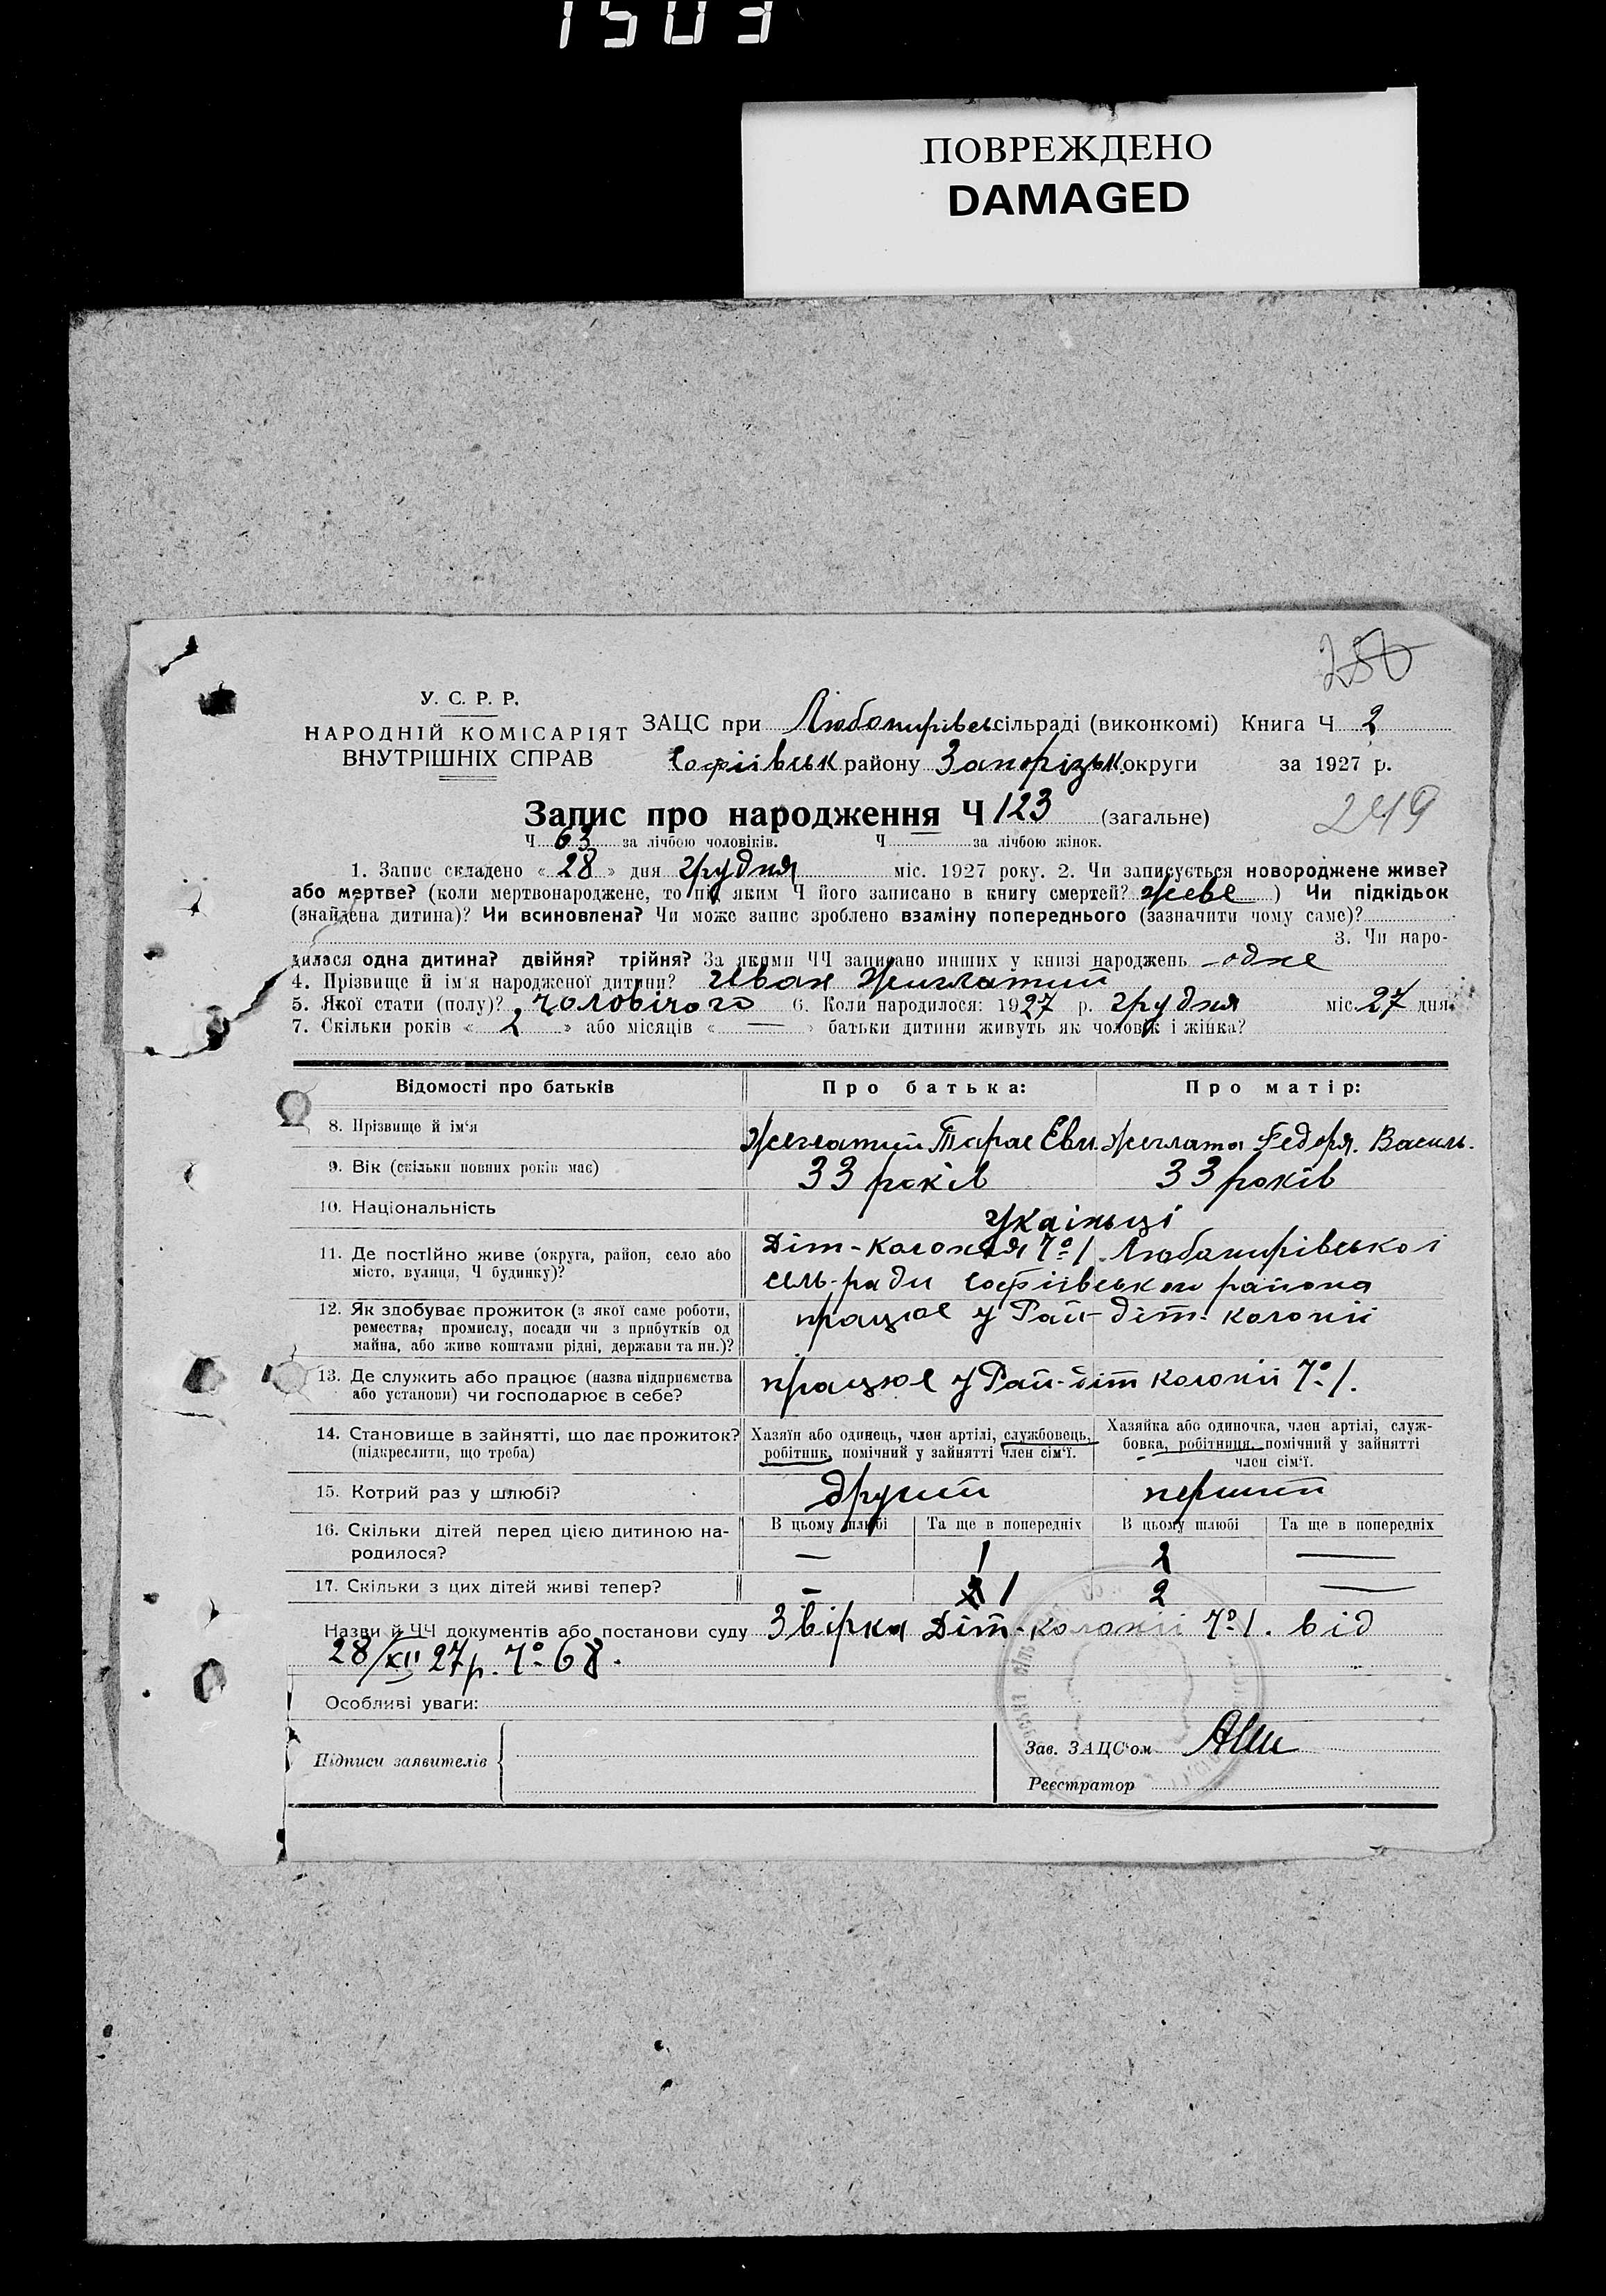 1503
ПОВРЕЖДЕНО
DAMAGED
250
У. С. Р. Р.
НАРОДНІЙ КОМІСАРІЯТ
ВНУТРІШНІХ СПРАВ
ЗАЦС при Любомирівсь сільраді (виконкомі) Книга Ч 2
Софіівськ району Запорізьк. округи за 1927 р.
Запис про народження Ч 123 (загальне)
249
Ч 63 за лічбою чоловіків. Ч за лічбою жінок.
1. Запис складено « 28 » дня грудня міс. 1927 року. 2. Чи записується новороджене живе?
або мертве? (коли мертвонароджене, то під яким Ч його записано в книгу смертей? живе ) Чи підкідьок
(знайдена дитина)? Чи всиновлена? Чи може запис зроблено взаміну попереднього (зазначити чому саме)?
3. Чи наро-
дилася одна дитина? двійня? трійня? За якими ЧЧ записано инших у книзі народжень одне
4. Прізвище й ім'я народженої дитини? Иван Жиглатий
5. Якої стати (полу)? чоловічого 6. Коли народилося: 1927 р. грудня міс. 27 дня.
7. Скільки років « 2 » або місяців « — » батьки дитини живуть як чоловік і жінка?
Відомості про батьків Про батька: Про матір:
8. Прізвище й ім'я Жеглатий Тарас Евм. Жеглата Федоря. Василь.
9. Вік (скільки повних років має) 33 років 33 років
10. Національність Украінці
11. Де постійно живе (округа, район, село або Діт-колонія № 1 Любомирівськоі
місто, вулиця, Ч будинку)? сель-ради Софіівського района
12. Як здобуває прожиток (з якої саме роботи, працює у Рай-діт-колоніі
ремества, промислу, посади чи з прибутків од
майна, або живе коштами рідні, держави та ин.)?
13. Де служить або працює (назва підприємства працює у Рай-діт колоніі № 1.
або установи) чи господарює в себе?
14. Становище в зайнятті, що дає прожиток? Хазяїн або одинець, член артілі, службовець, Хазяйка або одиночка, член артілі, служ-
(підкреслити, що треба) робітник, помічний у зайнятті член сім'ї. бовка, робітниця, помічний у зайнятті
член сім'ї.
15. Котрий раз у шлюбі? другий перший
16. Скільки дітей перед цією дитиною на- В цьому шлюбі Та ще в попередніх В цьому шлюбі Та ще в попередніх
родилося? — 1 2 —
17. Скільки з цих дітей живі тепер? — 1 2 —
Назви й ЧЧ документів або постанови суду Звірка Діт-колоніі № 1. від
28/XII 27р. № 68.
Особливі уваги:
Підписи заявителів
Зав. ЗАЦС'ом
Реєстратор